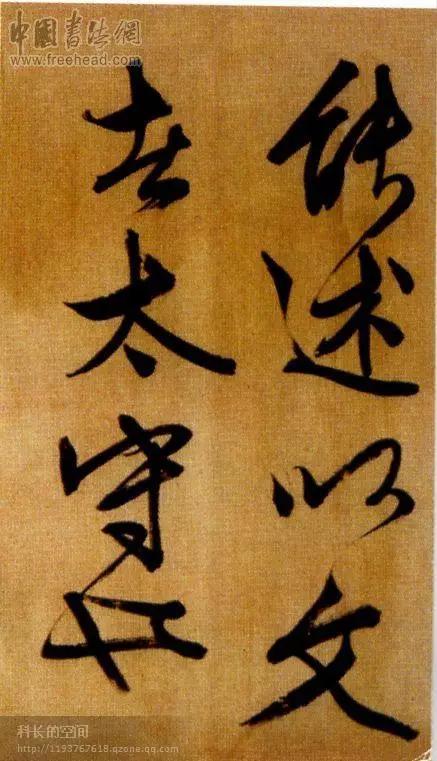 能述以文
者太守也
中国书法網
www.freehead.com
科长的空间
http://1193767618.qzone.qq.com